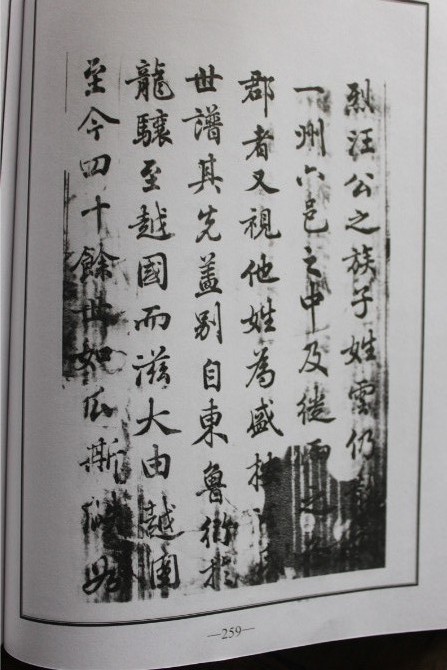 烈汪公之族子姓雲仍
一州六邑之中及徙而之
郡者又視他姓為盛
世譜其先蓋别自東魯衍於
龍驤至越國而滋大由越國
至今四十餘世如瓜
—259—